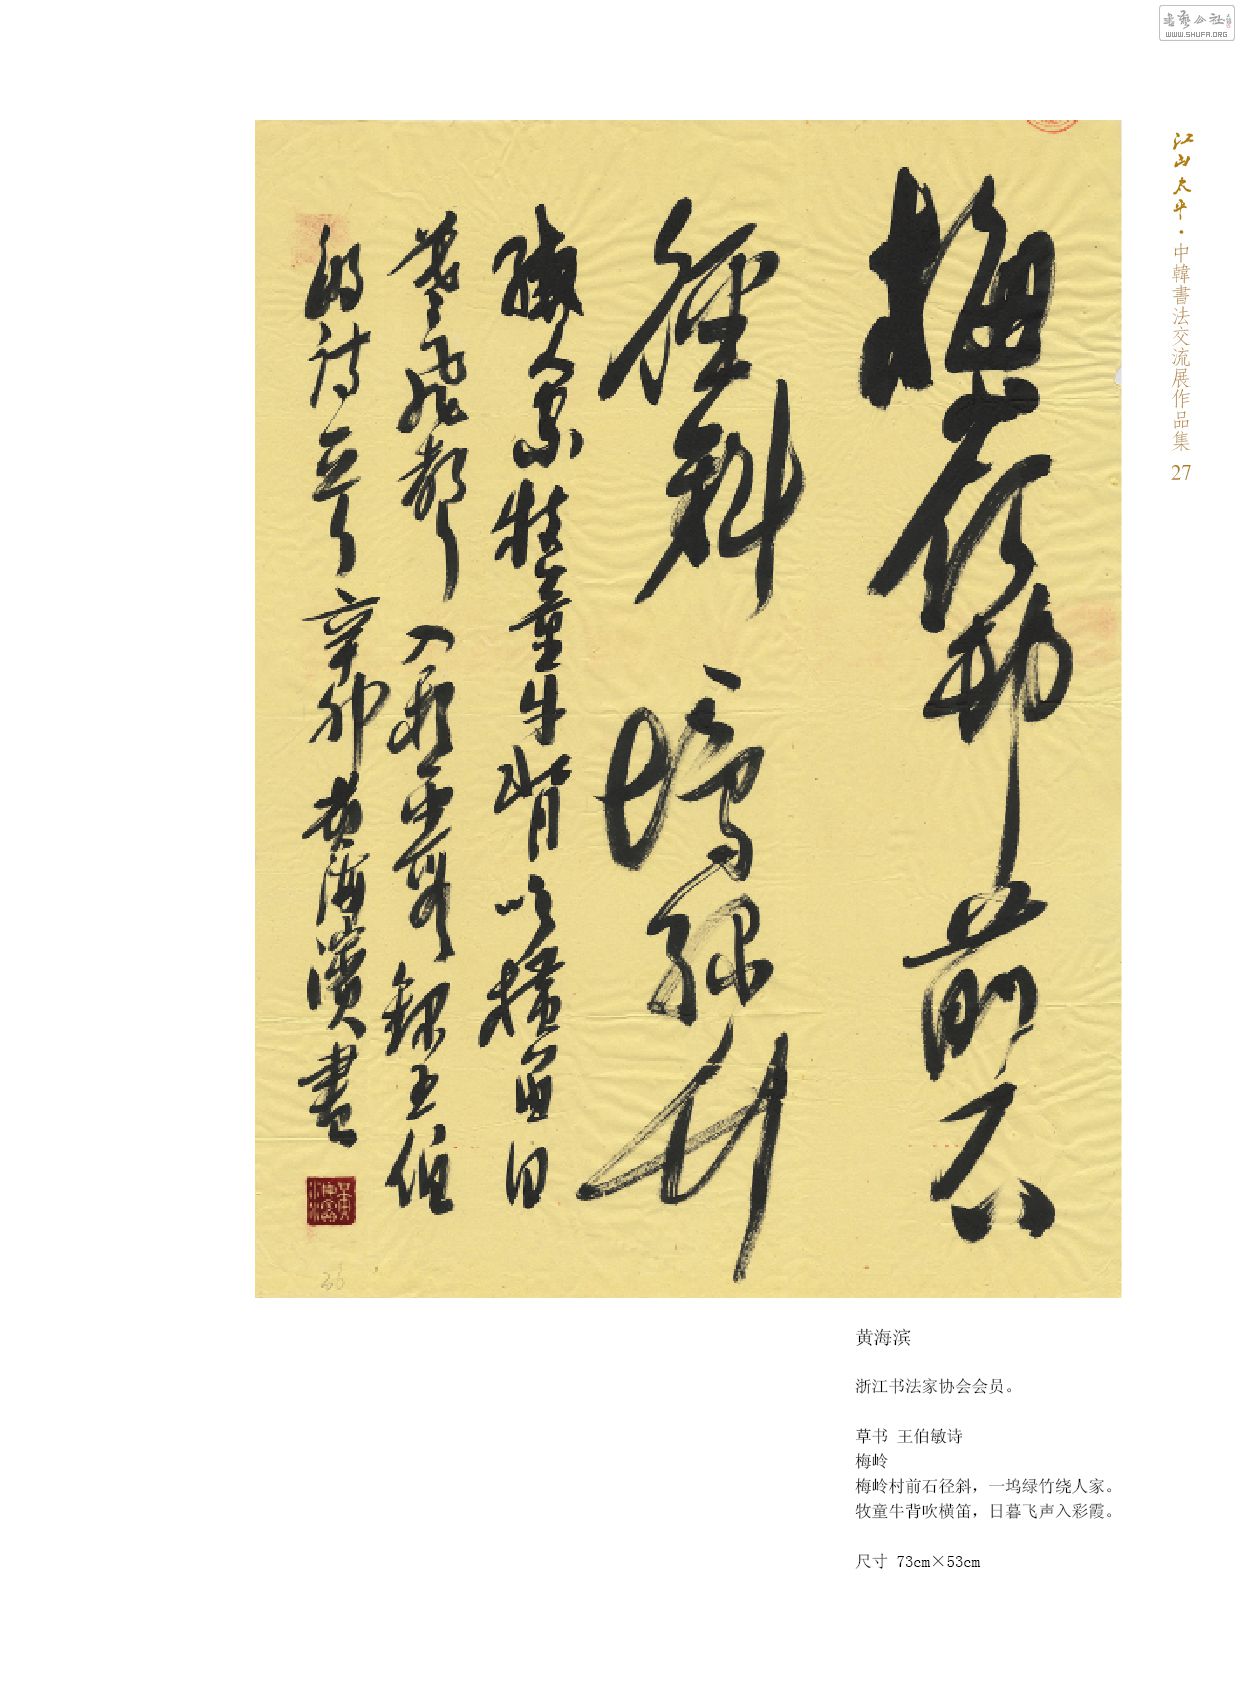 書藝公社
WWW.SHUFA.ORG
江山太平·中韓書法交流展作品集 27
梅嶺邨前石
徑斜一塢綠竹
繞人家牧童牛背吹橫笛日
暮飛聲入彩霞錄王伯
敏詩一首辛卯黃海濱書
26
黄海滨
浙江书法家协会会员。
草书 王伯敏诗
梅岭
梅岭村前石径斜，一坞绿竹绕人家。
牧童牛背吹横笛，日暮飞声入彩霞。
尺寸 73cm×53cm